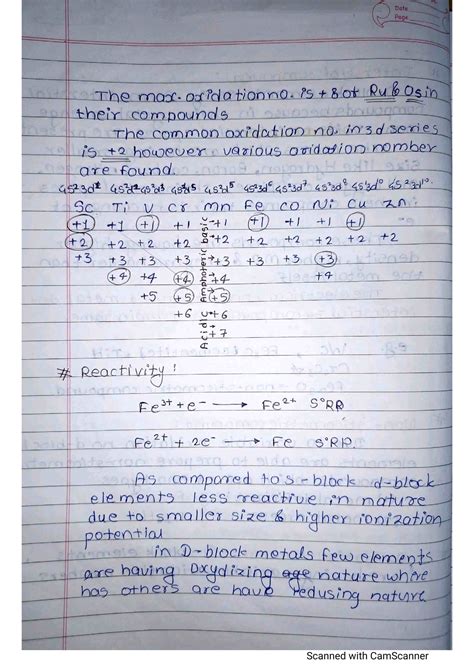 Date
Page
The max. oxidation no. is +8 of Ru & Os in
their compounds
The common oxidation no. in 3d series
is +2 however various oxidation nomber
are found.
4s²3d¹ 4s²3d² 4s²3d³ 4s¹3d⁵ 4s²3d⁵ 4s²3d⁶ 4s²3d⁷ 4s²3d⁸ 4s¹3d¹⁰ 4s²3d¹⁰
Sc Ti V Cr mn Fe co Ni Cu Zn
+1 +1 +1 +1 +1 +1 +1 +1 +1
+2 +2 +2 +2 +2 +2 +2 +2 +2 +2
+3 +3 +3 +3 +3 +3 +3 +3 +3
+4 +4 +4 +4 +4
+5 +5 +5
+6 +6
+7
Acidic Amphoteric basic
# Reactivity:
Fe³⁺ + e⁻ → Fe²⁺ S°RP
Fe²⁺ + 2e⁻ → Fe S°RP.
As compared to s-block d-block
elements less reactive in nature
due to smaller size & higher ionization
potential
in D-block metals few elements
are having Oxydizing age nature whre
has others are have redusing nature
Scanned with CamScanner